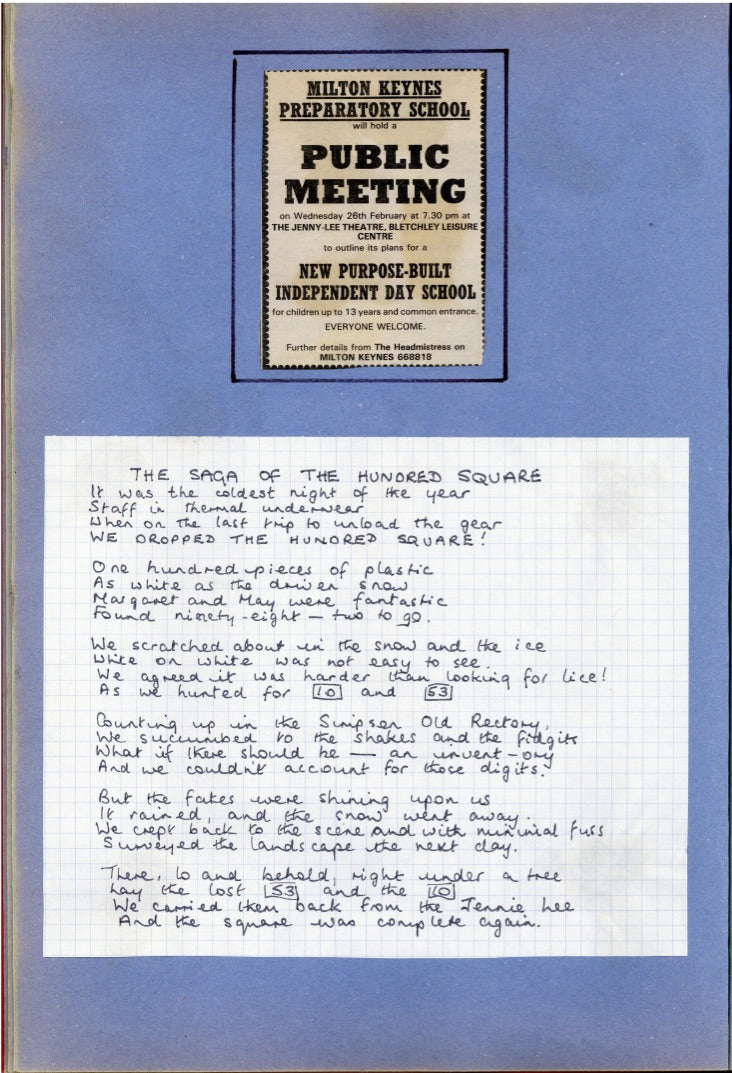 MILTON KEYNES
PREPARATORY SCHOOL
will hold a
PUBLIC
MEETING
on Wednesday 26th February at 7.30 pm at
THE JENNY-LEE THEATRE, BLETCHLEY LEISURE
CENTRE
to outline its plans for a
NEW PURPOSE-BUILT
INDEPENDENT DAY SCHOOL
for children up to 13 years and common entrance.
EVERYONE WELCOME.
Further details from The Headmistress on
MILTON KEYNES 668818
THE SAGA OF THE HUNDRED SQUARE
It was the coldest night of the year
Staff in thermal underwear
When on the last trip to unload the gear
WE DROPPED THE HUNDRED SQUARE!
One hundred pieces of plastic
As white as the driven snow
Margaret and May were fantastic
Found ninety-eight — two to go.
We scratched about in the snow and the ice
White on white was not easy to see.
We agreed it was harder than looking for lice!
As we hunted for 10 and 53
Counting up in the Simpson Old Rectory,
We succumbed to the shakes and the fidgits
What if there should be — an invent-ory
And we couldn't account for those digits.
But the fates were shining upon us
It rained, and the snow went away.
We crept back to the scene and with minimal fuss
Surveyed the landscape the next day.
There, lo and behold, right under a tree
Lay the lost 53 and the 10
We carried them back from the Jennie Lee
And the square was complete again.